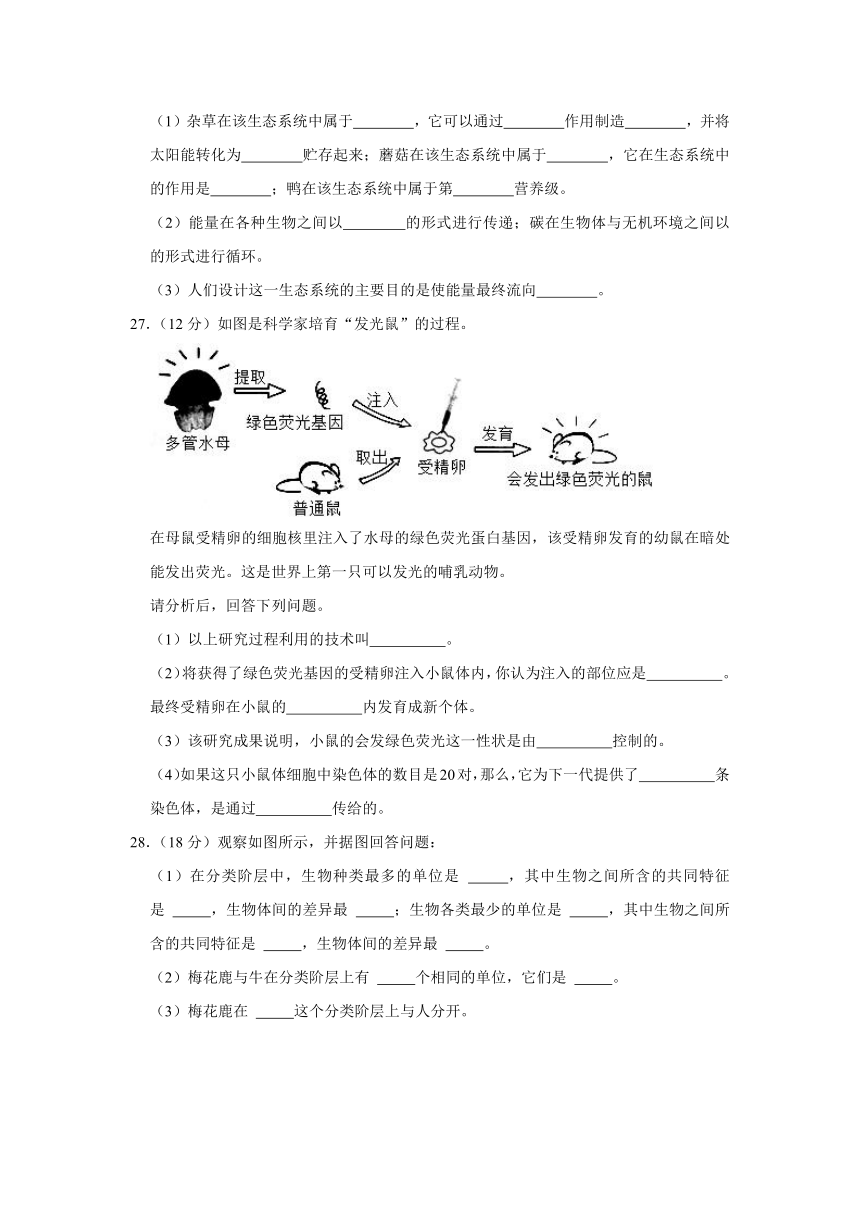 （1）杂草在该生态系统中属于________，它可以通过________作用制造________，并将
太阳能转化为________贮存起来；蘑菇在该生态系统中属于________，它在生态系统中
的作用是________；鸭在该生态系统中属于第________营养级。
（2）能量在各种生物之间以________的形式进行传递；碳在生物体与无机环境之间以
的形式进行循环。
（3）人们设计这一生态系统的主要目的是使能量最终流向________。
27.（12分）如图是科学家培育“发光鼠”的过程。
提取
注入
绿色荧光基因
多管水母
取出
受精卵
发育
会发出绿色荧光的鼠
普通鼠
在母鼠受精卵的细胞核里注入了水母的绿色荧光蛋白基因，该受精卵发育的幼鼠在暗处
能发出荧光。这是世界上第一只可以发光的哺乳动物。
请分析后，回答下列问题。
（1）以上研究过程利用的技术叫__________。
（2）将获得了绿色荧光基因的受精卵注入小鼠体内，你认为注入的部位应是__________。
最终受精卵在小鼠的__________内发育成新个体。
（3）该研究成果说明，小鼠的会发绿色荧光这一性状是由__________控制的。
（4）如果这只小鼠体细胞中染色体的数目是20对，那么，它为下一代提供了__________条
染色体，是通过__________传给的。
28.（18分）观察如图所示，并据图回答问题：
（1）在分类阶层中，生物种类最多的单位是_____，其中生物之间所含的共同特征
是_____，生物体间的差异最_____；生物各类最少的单位是_____，其中生物之间所
含的共同特征是_____，生物体间的差异最_____。
（2）梅花鹿与牛在分类阶层上有_____个相同的单位，它们是_____。
（3）梅花鹿在_____这个分类阶层上与人分开。